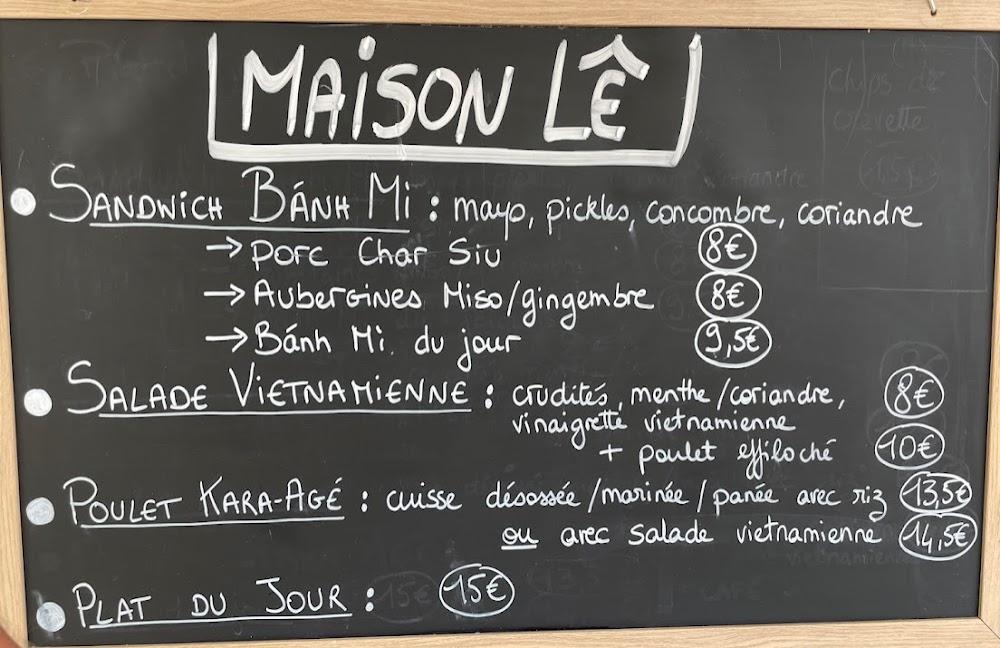 MAiSON LÊ
SANDWiCH BÁNH Mi : mayo, pickles, concombre, coriandre
→ Porc Char Siu 8€
→ Aubergines Miso/gingembre 8€
→ Bánh Mi. du jour 9,5€
SALADE VIETNAMIENNE : crudités, menthe/coriandre, 8€
vinaigrette vietnamienne
+ poulet effiloché 10€
POULET KARA-AGÉ : cuisse désossée/marinée/panée avec riz 13,5€
ou avec salade vietnamienne 14,5€
PLAT DU JOUR : 15€
chips de
crevette
1,5€